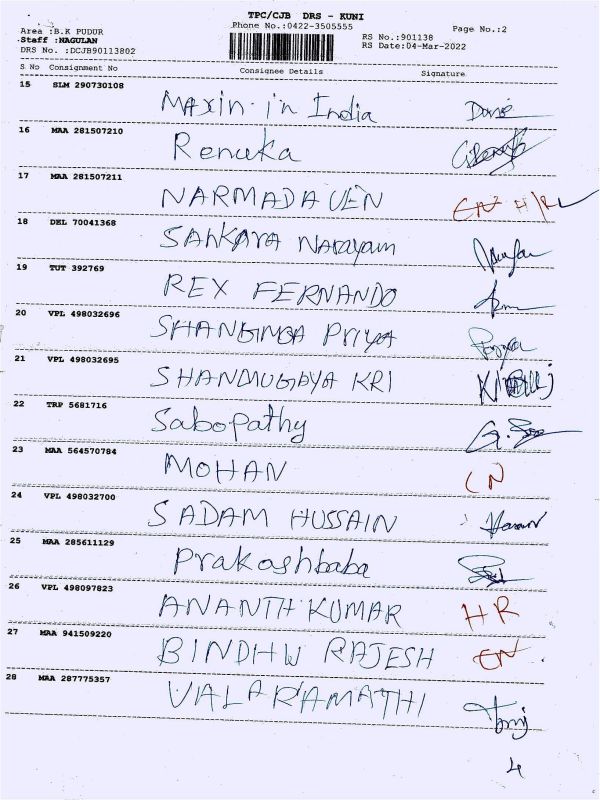 TPC/CJB DRS - KUNI
Area :B.K PUDUR Phone No.:0422-3505555 Page No.:2
Staff :NAGULAN RS No.:901138
DRS No. :DCJB90113802 RS Date:04-Mar-2022
S No Consignment No Consignee Details Signature
15 SLM 290730108 Maxin in India
16 MAA 281507210 Renuka
17 MAA 281507211 NARMADA VEN
18 DEL 70041368 SANKARA Narayam
19 TUT 392769 REX FERNANDO
20 VPL 498032696 Priya
21 VPL 498032695 KRI
22 TRP 5681716 Sabopathy
23 MAA 564570784 MOHAN
24 VPL 498032700 SADAM HUSSAIN
25 MAA 285611129 Prakashbaba
26 VPL 498097823 ANANTH KUMAR HR
27 MAA 941509220 BINDHU RAJESH
28 MAA 287775357 VALARAMATHI
4